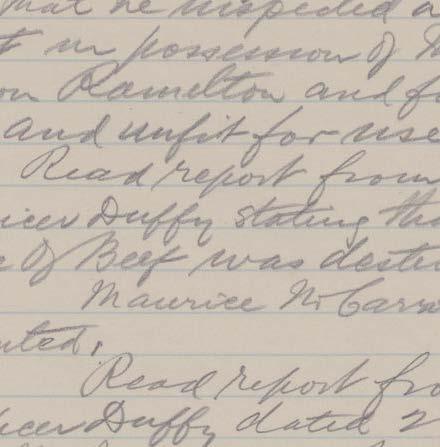 that he inspected a
t in possession of M
on Ramelton and f
and unfit for use
Read report from
icer Duffy stating tha
e of Beef was destr
Maurice McCarr
uted.
Read report fro
icer Duffy dated 2